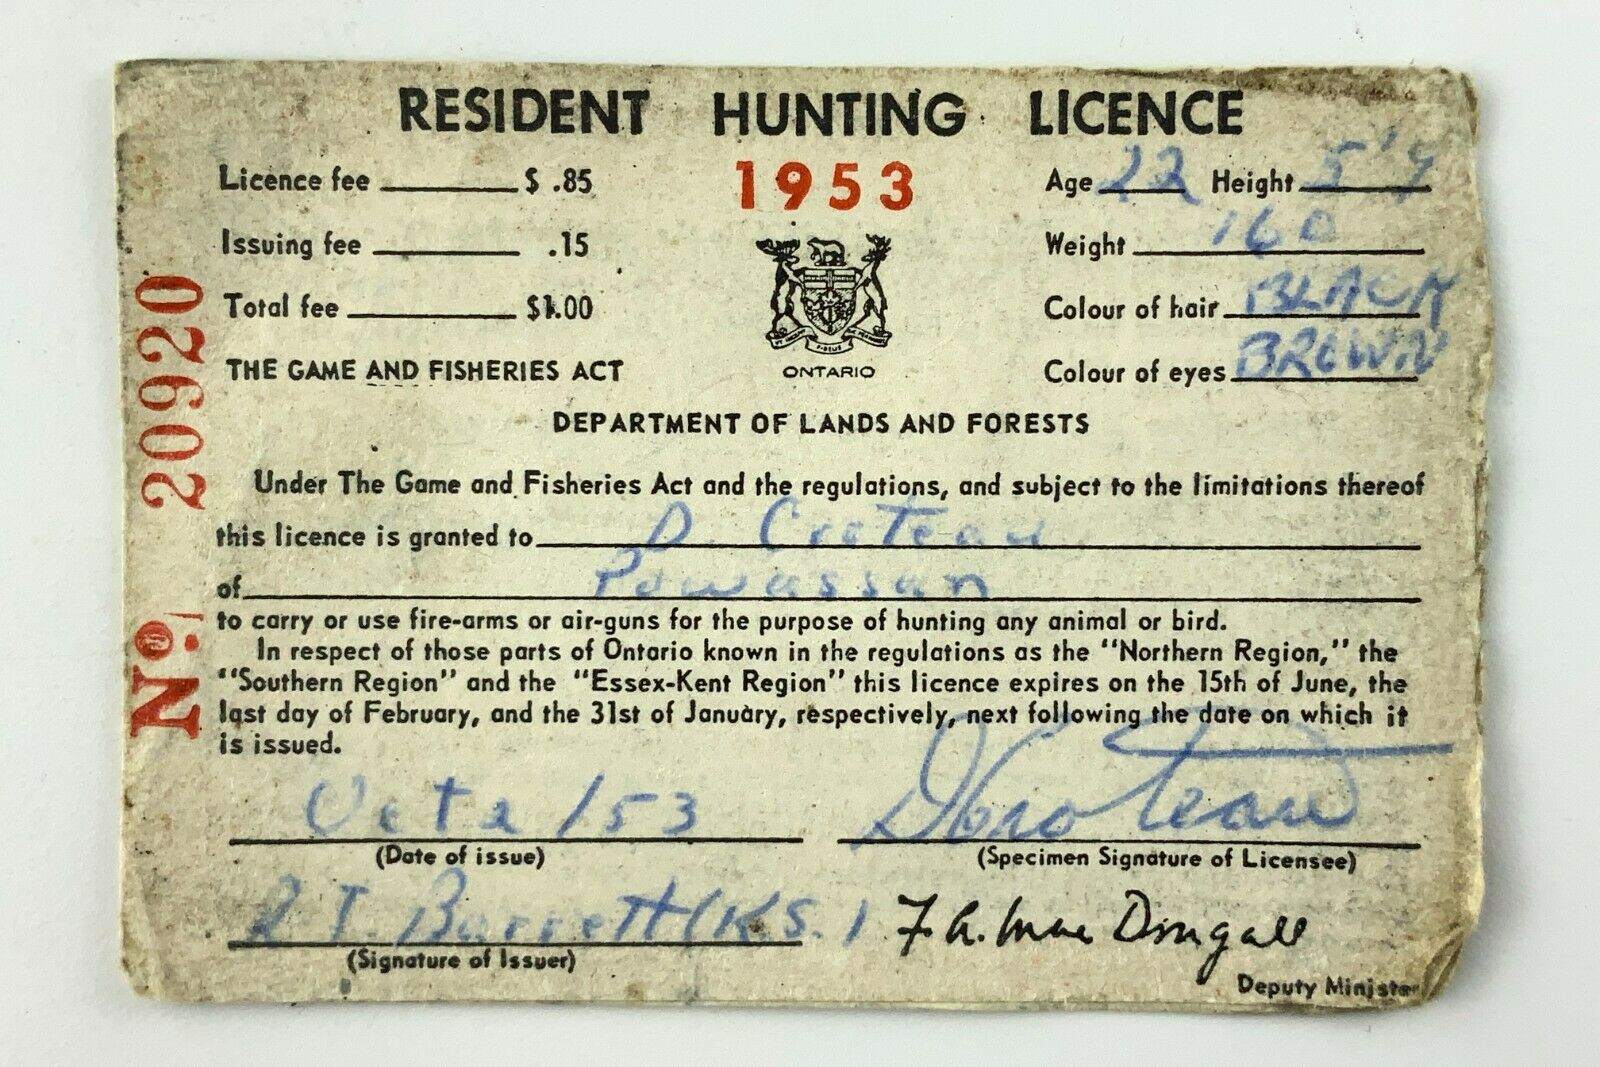 RESIDENT HUNTING LICENCE
Licence fee $ .85
1953
Age 22 Height 5'9
Issuing fee .15
Weight 160
Total fee $1.00
Colour of hair BLACK
THE GAME AND FISHERIES ACT
ONTARIO
Colour of eyes BROWN
DEPARTMENT OF LANDS AND FORESTS
Under The Game and Fisheries Act and the regulations, and subject to the limitations thereof
this licence is granted to D. Croteau
of Powassan
to carry or use fire-arms or air-guns for the purpose of hunting any animal or bird.
In respect of those parts of Ontario known in the regulations as the "Northern Region," the
"Southern Region" and the "Essex-Kent Region" this licence expires on the 15th of June, the
last day of February, and the 31st of January, respectively, next following the date on which it
is issued.
Oct 2/53
D Croteau
(Date of issue)
(Specimen Signature of Licensee)
R T. Barrett (K.S.)
F. A. MacDougall
(Signature of Issuer)
Deputy Minister
No. 20920